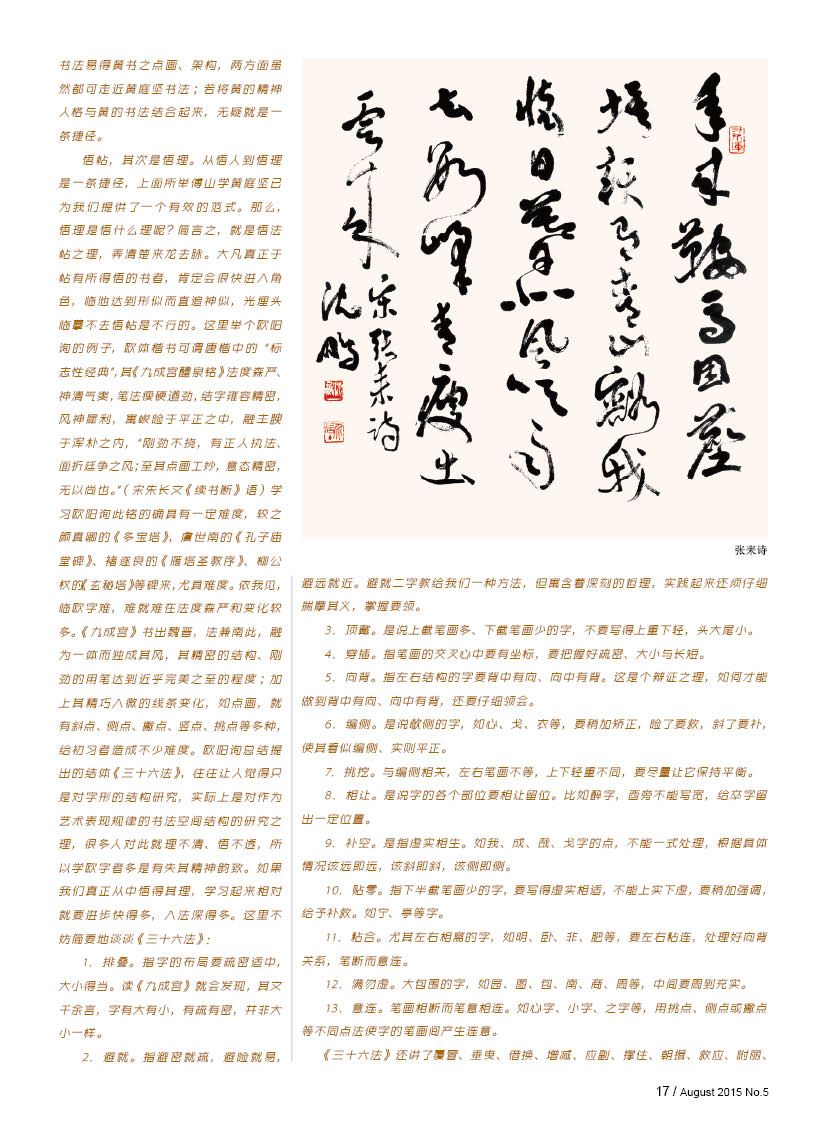 书法易得黄书之点画、架构，两方面虽
然都可走近黄庭坚书法；若将黄的精神
人格与黄的书法结合起来，无疑就是一
条捷径。
悟帖，其次是悟理。从悟人到悟理
是一条捷径，上面所举傅山学黄庭坚已
为我们提供了一个有效的范式。那么，
悟理是悟什么理呢？简言之，就是悟法
帖之理，弄清楚来龙去脉。大凡真正于
帖有所得悟的书者，肯定会很快进入角
色，临池达到形似而直追神似，光埋头
临摹不去悟帖是不行的。这里举个欧阳
询的例子，欧体楷书可谓唐楷中的“标
志性经典”，其《九成宫醴泉铭》法度森严、
神清气爽，笔法瘦硬遒劲，结字雍容精密，
风神犀利，寓峻险于平正之中，融丰腴
于浑朴之内，“刚劲不挠，有正人执法、
面折廷争之风；至其点画工妙，意态精密，
无以尚也。”（宋朱长文《续书断》语）学
习欧阳询此铭的确具有一定难度，较之
颜真卿的《多宝塔》，虞世南的《孔子庙
堂碑》、褚遂良的《雁塔圣教序》、柳公
权的《玄秘塔》等碑来，尤具难度。依我见，
临欧字难，难就难在法度森严和变化较
多。《九成宫》书出魏晋，法兼南北，融
为一体而独成其风，其精密的结构、刚
劲的用笔达到近乎完美之至的程度；加
上其精巧入微的线条变化，如点画，就
有斜点、侧点、撇点、竖点、挑点等多种，
给初习者造成不少难度。欧阳询总结提
出的结体《三十六法》，往往让人觉得只
是对字形的结构研究，实际上是对作为
艺术表现规律的书法空间结构的研究之
理，很多人对此就理不清、悟不透，所
以学欧字者多是有失其精神韵致。如果
我们真正从中悟得其理，学习起来相对
就要进步快得多，入法深得多。这里不
妨简要地谈谈《三十六法》：
1．排叠。指字的布局要疏密适中，
大小得当。读《九成宫》就会发现，其文
千余言，字有大有小，有疏有密，并非大
小一样。
2．避就。指避密就疏，避险就易，
年来鞍马困尘
埃赖有青山豁我
怀日暮北风吹雨
去数峰青瘦出
云来
宋张耒诗
沈鹏
张耒诗
避远就近。避就二字教给我们一种方法，但寓含着深刻的哲理，实践起来还须仔细
揣摩其义，掌握要领。
3．顶戴。是说上截笔画多、下截笔画少的字，不要写得上重下轻，头大尾小。
4．穿插。指笔画的交叉心中要有坐标，要把握好疏密、大小与长短。
5．向背。指左右结构的字要背中有向、向中有背。这是个辩证之理，如何才能
做到背中有向、向中有背，还要仔细领会。
6．偏侧。是说欹侧的字，如心、戈、衣等，要稍加矫正，险了要救，斜了要补，
使其看似偏侧、实则平正。
7．挑挖。与偏侧相关，左右笔画不等，上下轻重不同，要尽量让它保持平衡。
8．相让。是说字的各个部位要相让留位。比如醉字，酉旁不能写宽，给卒字留
出一定位置。
9．补空。是指虚实相生。如我、成、哉、戈字的点，不能一式处理，根据具体
情况该远即远，该斜即斜，该侧即侧。
10．贴零。指下半截笔画少的字，要写得虚实相适，不能上实下虚，要稍加强调，
给予补救。如宁、亭等字。
11．粘合。尤其左右相离的字，如明、卧、非、肥等，要左右粘连，处理好向背
关系，笔断而意连。
12．满勿虚。大包围的字，如园、图、包、南、商、周等，中间要周到充实。
13．意连。笔画相断而笔意相连。如心字、小字、之字等，用挑点、侧点或撇点
等不同点法使字的笔画间产生连意。
《三十六法》还讲了覆冒、垂曳、借换、增减、应副、撑住、朝揖、救应、附丽、
17 / August 2015 No.5